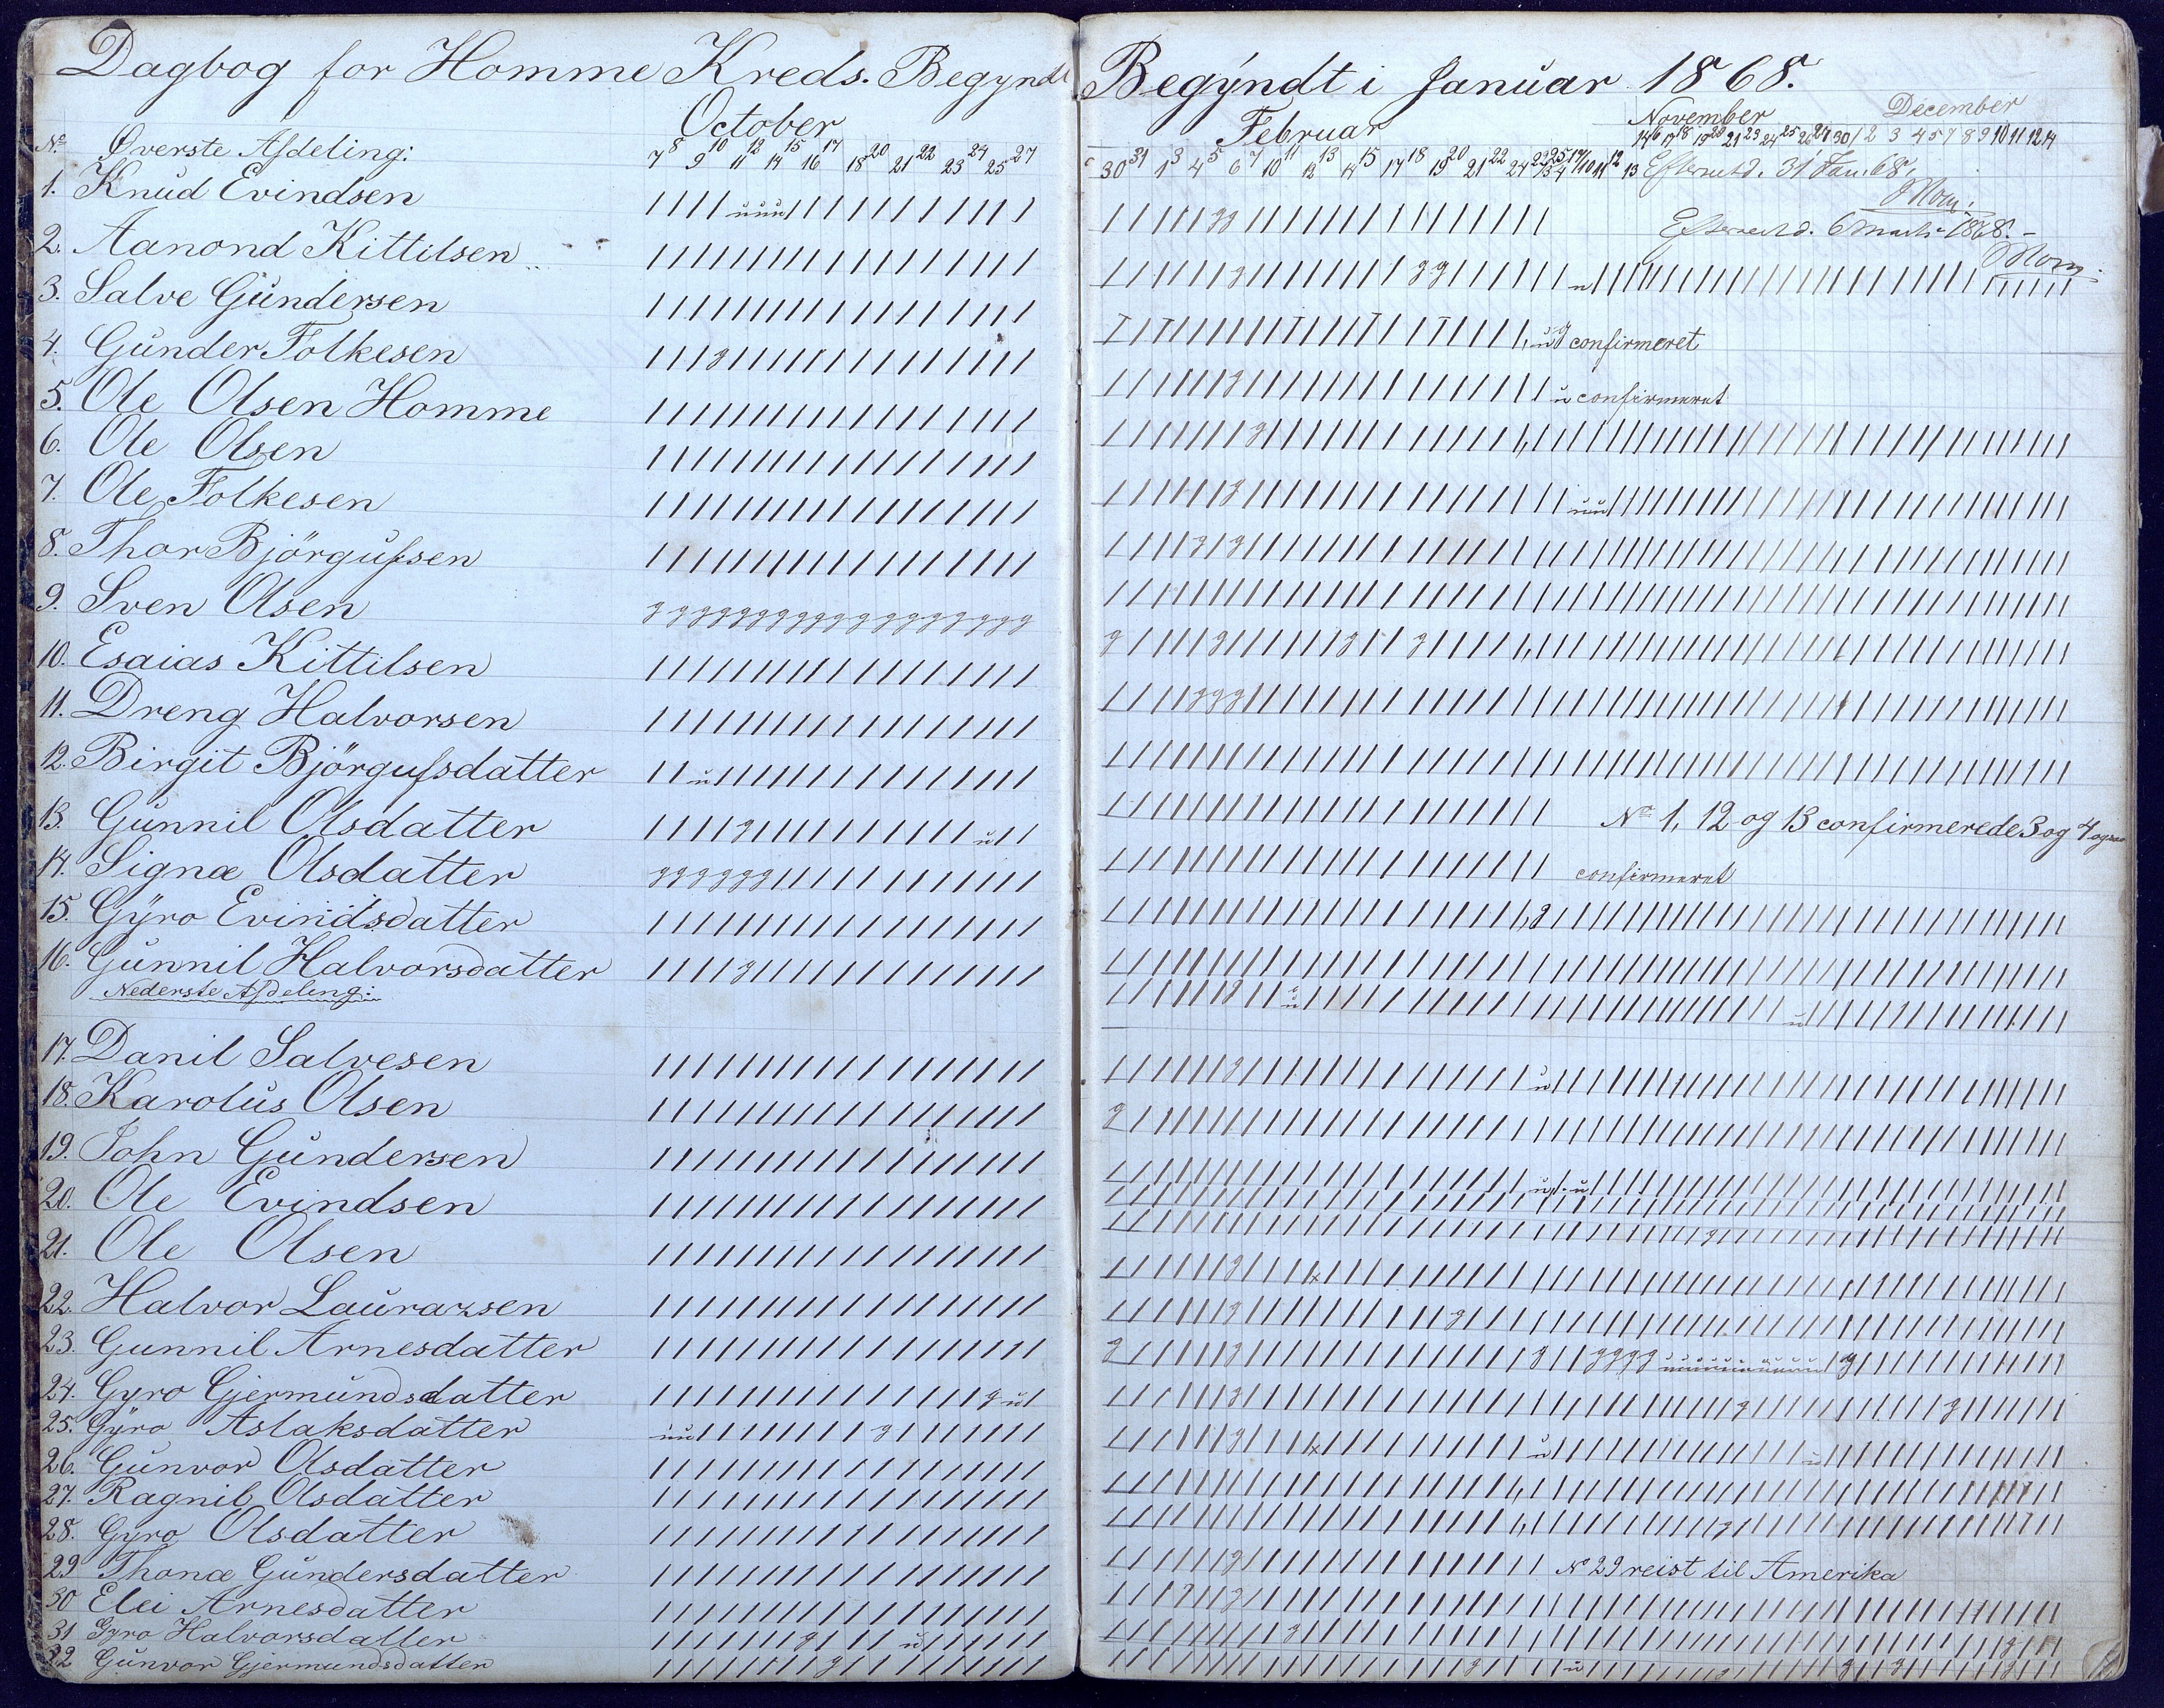 Dagbog for Homme Kreds. Begyndt
October
No Øverste Afdeling:
7 8 9 10 11 12 14 15 16 17 18 20 21 22 23 24 25 27
1. Knud Evindsen
2. Aanond Kittilsen
3. Salve Gundersen
4. Gunder Folkesen
5. Ole Olsen Homme
6. Ole Olsen
7. Ole Folkesen
8. Thor Björgufsen
9. Sven Olsen g g g g g g g g g g g g g g g g g g
10. Esaias Kittilsen
11. Dreng Halvorsen
12. Birgit Björgufsdatter
13. Gunnil Olsdatter
14. Signæ Olsdatter
15. Gÿro Evindsdatter
16. Gunnil Halvorsdatter
Nederste Afdeling:
17. Danil Salvesen
18. Karolus Olsen
19. John Gundersen
20. Ole Evindsen
21. Ole Olsen
22. Halvor Laurazsen
23. Gunnil Arnesdatter
24. Gyro Gjermundsdatter
25. Gÿro Aslaksdatter
26. Gunvor Olsdatter
27. Ragnil Olsdatter
28. Gyro Olsdatter
29 Thonæ Gundersdatter
30 Elei Arnesdatter
31 Gyro Halvorsdatter
32 Gunvor Gjermundsdatter
Begÿndt i Januar 1868.
Februar November December
30 31 1 3 4 5 6 7 10 11 12 13 14 15 17 18 19 20 21 22 24
14 16 17 18 19 20 21 23 24 25 26 27 30 1 2 3 4 5 7 8 9 10 11 12 14
Efterseet d. 31 Jan. 68.
Efterseet d. 6 Marts 1868.
confirmeret
confirmeret
No 1, 12 og 13 confirmerede 3 og 4 ogsaa
confirmeret
No 29 reist til Amerika